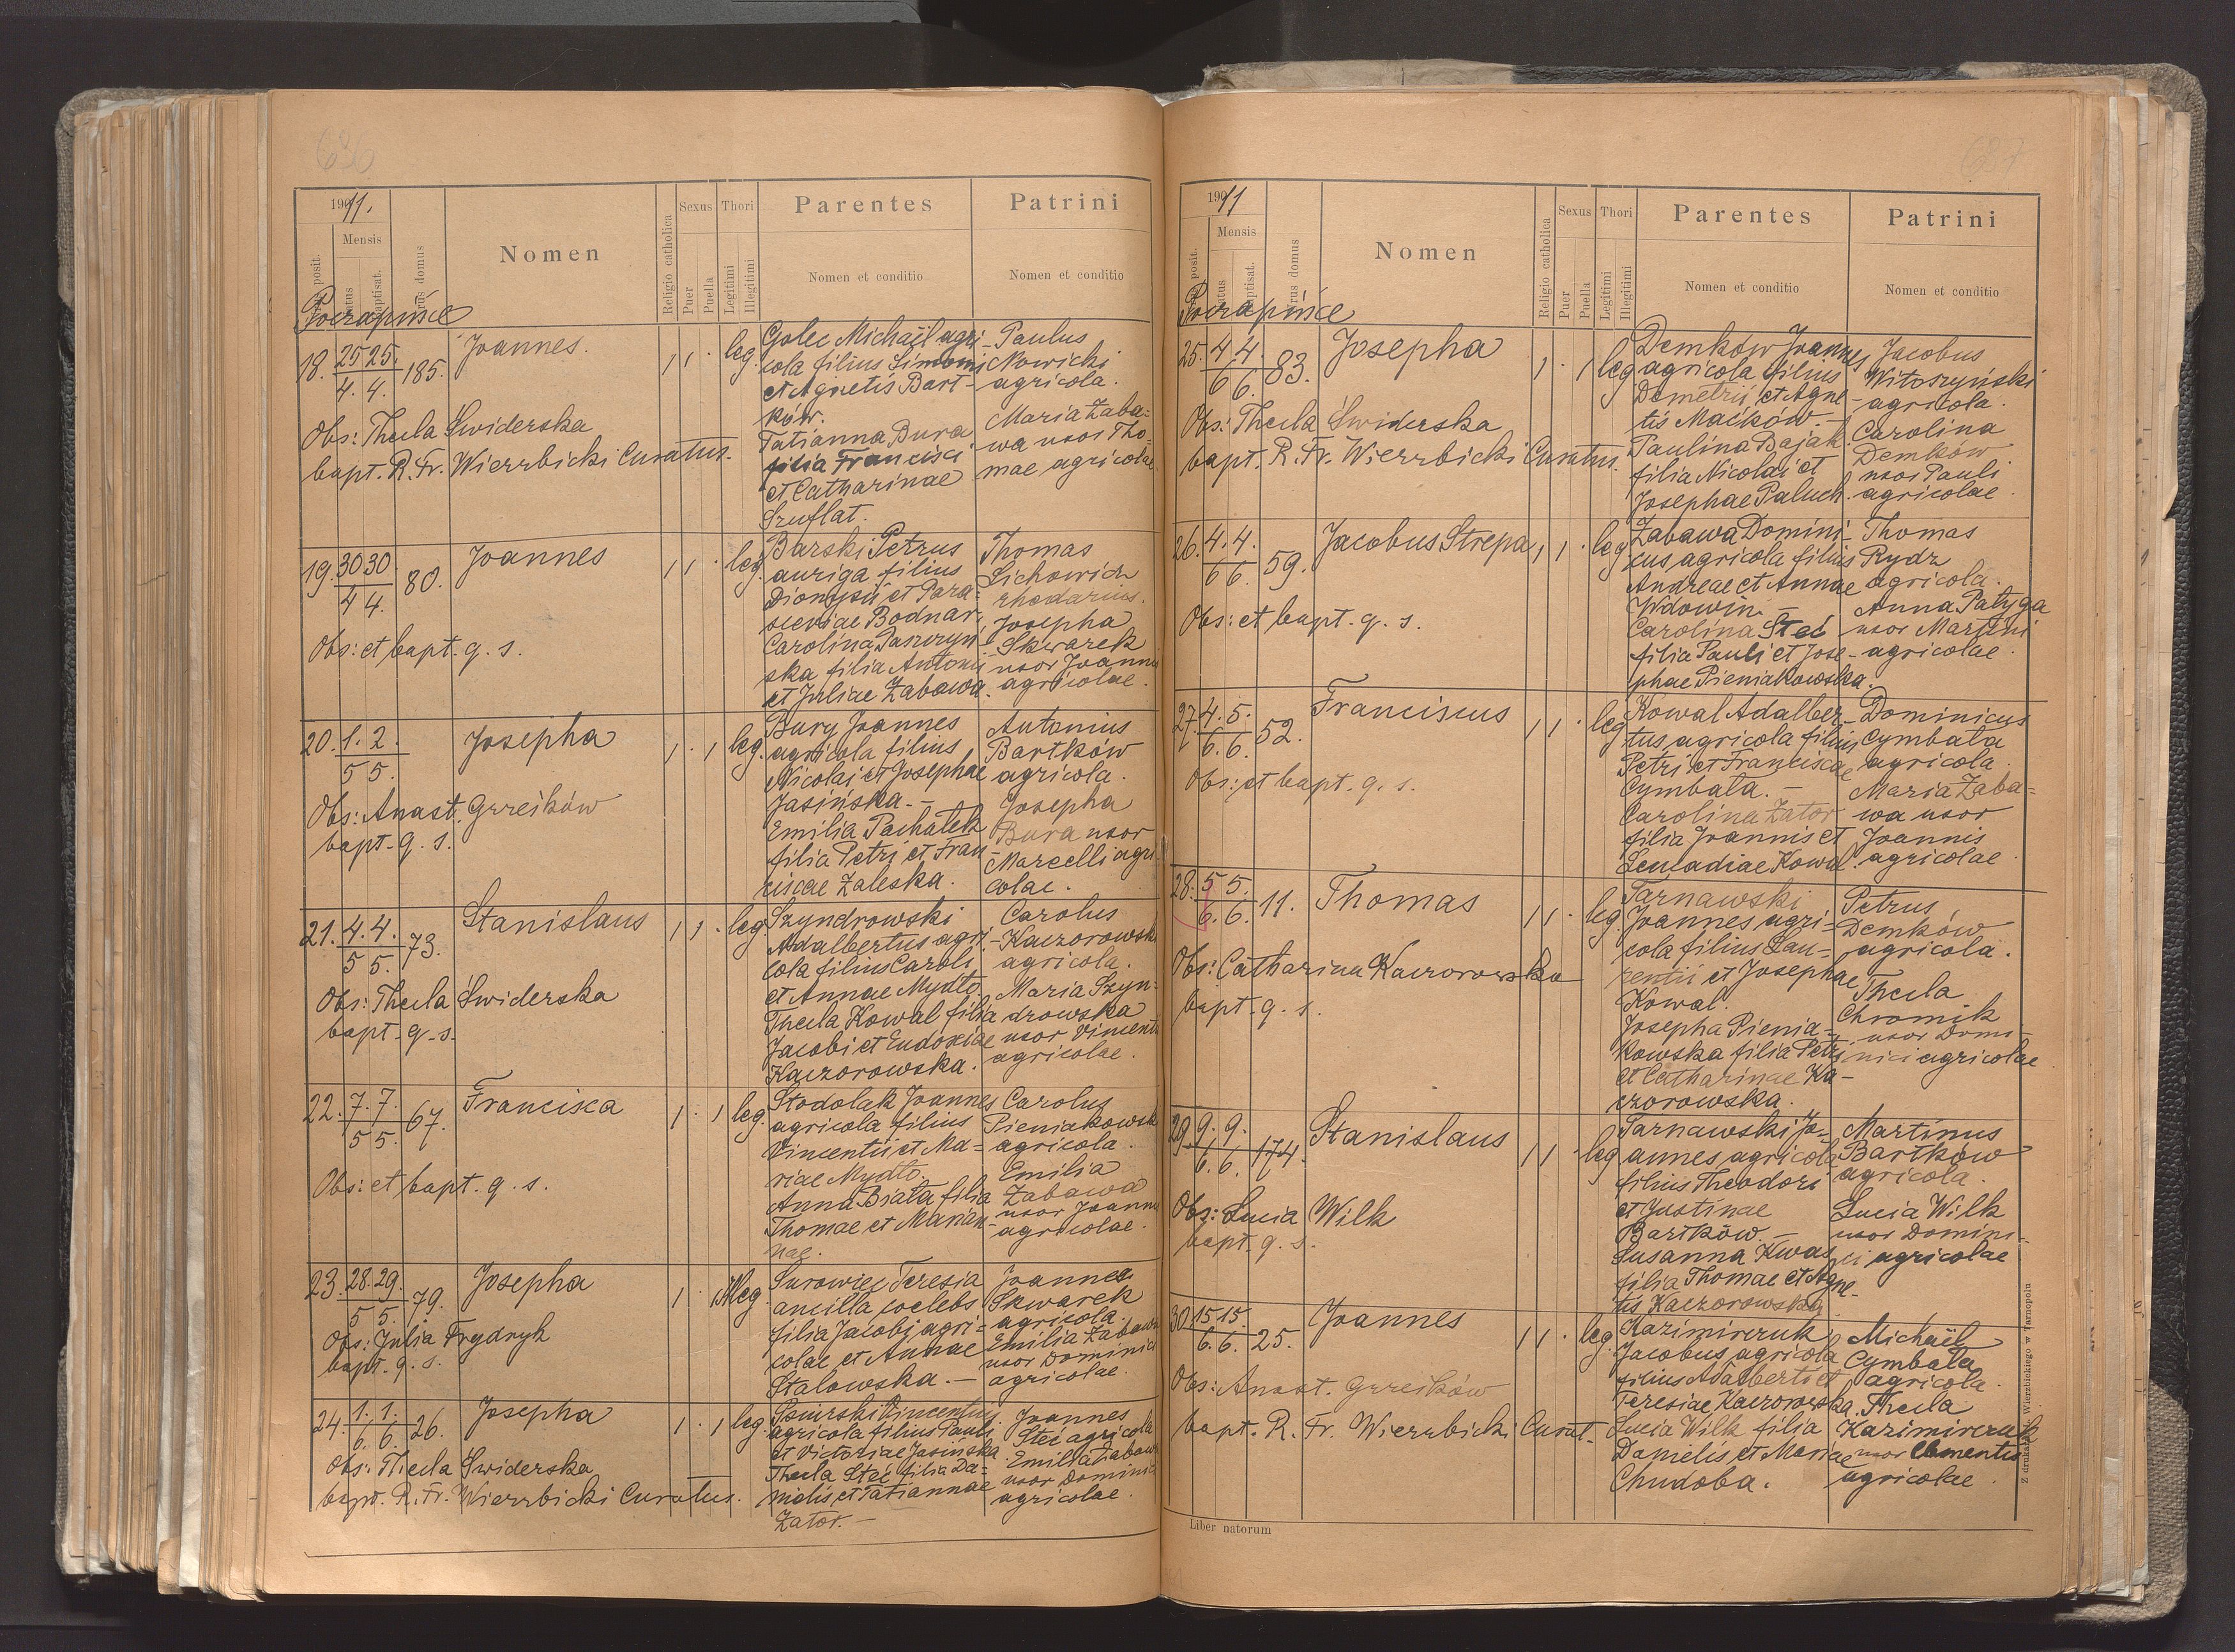 636
1911.
Mensis
posit.
Nomen
Religio catholica
Sexus
Puer
Puella
Thori
Legitimi
Illegitimi
Parentes
Nomen et conditio
Patrini
Nomen et conditio
18. 25 25. 185. Joannes. 1 1 . leg.
4. 4.
Obs: Thecla Świderska
bapt. R. Fr. Wierzbicki Curatus.
Golec Michaël agri-
cola filius Simonis
et Agnetis Bart-
ków.
Tatianna Bura
filia Francisci
et Catharinae
Szuflat.
Paulus
Nowicki
agricola.
Maria Zaba=
wa uxor Tho=
mae agricolae
19. 30 30. 80. Joannes 1 1 . leg.
4 4.
Obs: et bapt. q. s.
Barski Petrus
auriga filius
Dionysii et Para=
sceviae Bodnar,
Carolina Panczyn
ska filia Antonii
et Juliae Zabawa.
Thomas
Sichowicz
rhedarius.
Josepha
Skwarek
uxor Joannis
agricolae.
20. 1. 2. Josepha 1 . 1 leg.
5 5.
Obs: Anast. Grzeików
bapt. q. s.
Bury Joannes
agricola filius
Nicolai et Josephae
Jasińska. -
Emilia Pachatek
filia Petri et Fran-
ciscae Zaleska.
Antonius
Bartków
agricola.
Josepha
Bura uxor
Marcelli agri
colae.
21. 4. 4. 73. Stanislaus 1 1 . leg.
5 5.
Obs: Thecla Świderska
bapt. q. s.
Szyndrowski
Adalbertus agri-
cola filius Caroli
et Annae Mydło
Thecla Kowal filia
Jacobi et Eudoxiae
Kaczorowska.
Carolus
Kaczorowski
agricola.
Maria Szyn=
drowska
uxor Vincentii
agricolae.
22. 7. 7. 67. Francisca 1 . 1 leg.
5 5.
Obs: et bapt. q. s.
Stodolak Joannes
agricola filius
Vincentii et Ma=
riae Mydło.
Anna Biała filia
Thomae et Marian-
nae.
Carolus
Pieniakowski
agricola.
Emilia
Zabawa
uxor Joannis
agricolae.
23. 28. 29. 79. Josepha 1 . 1 Illeg.
5 5.
Obs: Julia Frydryk
bapt. q. s.
Surowiec Teresia
ancilla coelebs
filia Jacobi agri=
colae et Annae
Stalowska. -
Joannes
Skwarek
agricola.
Emilia Zabawa
uxor Dominici
agricolae.
24. 1. 1. 26. Josepha 1 . 1 leg.
6. 6.
Obs: Thecla Świderska
bapt. R. Fr. Wierzbicki Curatus.
Vincentius
agricola filius Pauli
et Victoriae Jasińska.
Thecla Steć filia Da=
nielis et Tatiannae
Zator. -
Joannes
Steć agricola
Emilia Zabawa
uxor Dominici
agricolae.
637
1911
Mensis
posit.
Nomen
Religio catholica
Sexus
Puer
Puella
Thori
Legitimi
Illegitimi
Parentes
Nomen et conditio
Patrini
Nomen et conditio
25. 4 4. 83. Josepha 1 . 1 leg
6 6.
Obs: Thecla Świderska
bapt. R. Fr. Wierzbicki Curatus.
Demków Joannes
agricola filius
Demetrii et Agne-
tis Maćków. -
Paulina Bajak
filia Nicolai et
Josephae Paluch.
Jacobus
Witoszyński
agricola.
Carolina
Demków
uxor Pauli
agricolae.
26. 4. 4. 59. Jacobus Strepa 1 1 . leg
6 6.
Obs: et bapt. q. s.
Zabawa Domini-
cus agricola filius
Andreae et Annae
Wdowin. -
Carolina Steć
filia Pauli et Jose-
phae Pieniakowska.
Thomas
Rydz
agricola.
Anna Patyga
uxor Martini
agricolae.
27. 4. 5. 52. Franciscus 1 1 . leg
6. 6.
Obs: et bapt. q. s.
Kowal Adalber-
tus agricola filius
Petri et Franciscae
Cymbała. -
Carolina Zator
filia Joannis et
Leucadiae Kowal.
Dominicus
Cymbała
agricola.
Maria Zaba=
wa uxor
Joannis
agricolae.
28. 5 5. 11. Thomas 1 1 . leg.
6. 6.
Obs: Catharina Kaczorowska
bapt. q. s.
Tarnawski
Joannes agri=
cola filius Lau-
rentii et Josephae
Kowal.
Josepha Pienia=
kowska filia Petri
et Catharinae Ka-
czorowska.
Petrus
Demków
agricola.
Thecla
Chromik
uxor Domi-
nici agricolae
29. 9. 9. 174. Stanislaus 1 1 . leg
6. 6.
Obs: Lucia Wilk
bapt. q. s.
Tarnawski Jo-
annes agricola
filius Theodori
et Justinae
Bartków. -
Susanna Kwas
filia Thomae et Agne-
tis Kaczorowska.
Martinus
Bartków
agricola.
Lucia Wilk
uxor Domini-
ci agricolae
30. 15 15. 25. Joannes 1 1 . leg.
6. 6.
Obs: Anast. Grzeików
bapt. R. Fr. Wierzbicki Curat.
Kazimirczuk
Jacobus agricola
filius Adalberti et
Teresiae Kaczorowska.
Lucia Wilk filia
Danielis et Mariae
Chudoba.
Michaël
Cymbała
agricola.
Thecla
Kazimirczuk
uxor Clementis
agricolae.
Liber natorum
Wierzbickiego w Tarnopolu